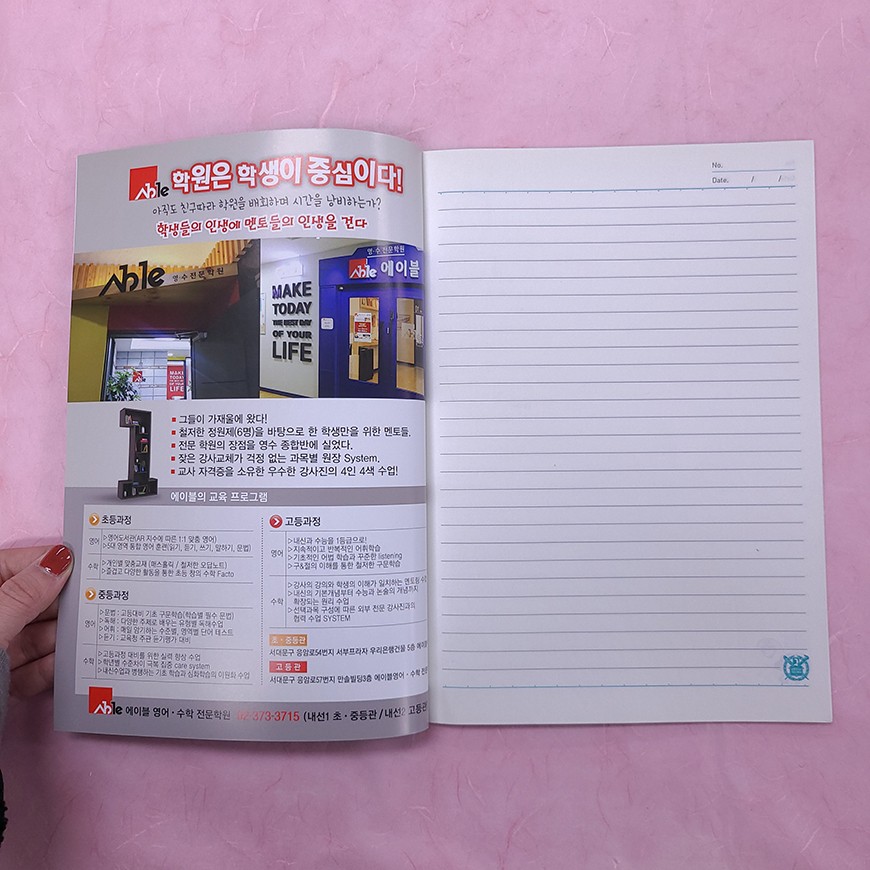 Able 학원은 학생이 중심이다!
아직도 친구따라 학원을 배회하며 시간을 낭비하는가?
학생들의 인생에 멘토들의 인생을 건다
Able 영·수전문학원
MAKE
TODAY
THE BEST DAY
OF YOUR
LIFE
영·수전문학원
Able 에이블
MAKE
TODAY
LIFE
그들이 가재울에 왔다!
철저한 정원제(6명)을 바탕으로 한 학생만을 위한 멘토들.
전문 학원의 장점을 영수 종합반에 실었다.
잦은 강사교체가 걱정 없는 과목별 원장 System.
교사 자격증을 소유한 우수한 강사진의 4인 4색 수업!
에이블의 교육 프로그램
초등과정
영어
▷영어도서관(AR 지수에 따른 1:1 맞춤 영어)
▷5대 영역 통합 영어 훈련(읽기, 듣기, 쓰기, 말하기, 문법)
수학
▷개인별 맞춤교재 (매스홀릭 / 철저한 오답노트)
▷즐겁고 다양한 활동을 통한 초등 창의 수학 Facto
중등과정
영어
▷문법 : 고등대비 기초 구문학습(학습별 필수 문법)
▷독해 : 다양한 주제로 배우는 유형별 독해수업
▷어휘 : 매일 암기하는 수준별, 영역별 단어 테스트
▷듣기 : 교육청 주관 듣기평가 대비
수학
▷고등과정 대비를 위한 실력 향상 수업
▷학년별 수준차이 극복 집중 care system
▷내신수업과 병행하는 기초 학습과 심화학습의 이원화 수업
고등과정
영어
▷내신과 수능을 1등급으로!
▷지속적이고 반복적인 어휘학습
▷기초적인 어법 학습과 꾸준한 listening
▷구&절의 이해를 통한 철저한 구문학습
수학
▷강사의 강의와 학생의 이해가 일치하는 멘토링 수업
▷내신의 기본개념부터 수능과 논술의 개념까지
확장되는 원리 수업
▷선택과목 구성에 따른 외부 전문 강사진과의
협력 수업 SYSTEM
초·중등관
서대문구 응암로54번지 서부프라자 우리은행건물 5층
고등관
서대문구 응암로57번지 만솔빌딩3층 에이블영어·수학
Able 에이블 영어·수학 전문학원 02-373-3715 (내선1 초·중등관 / 내선2 고등관
No.
Date. / /